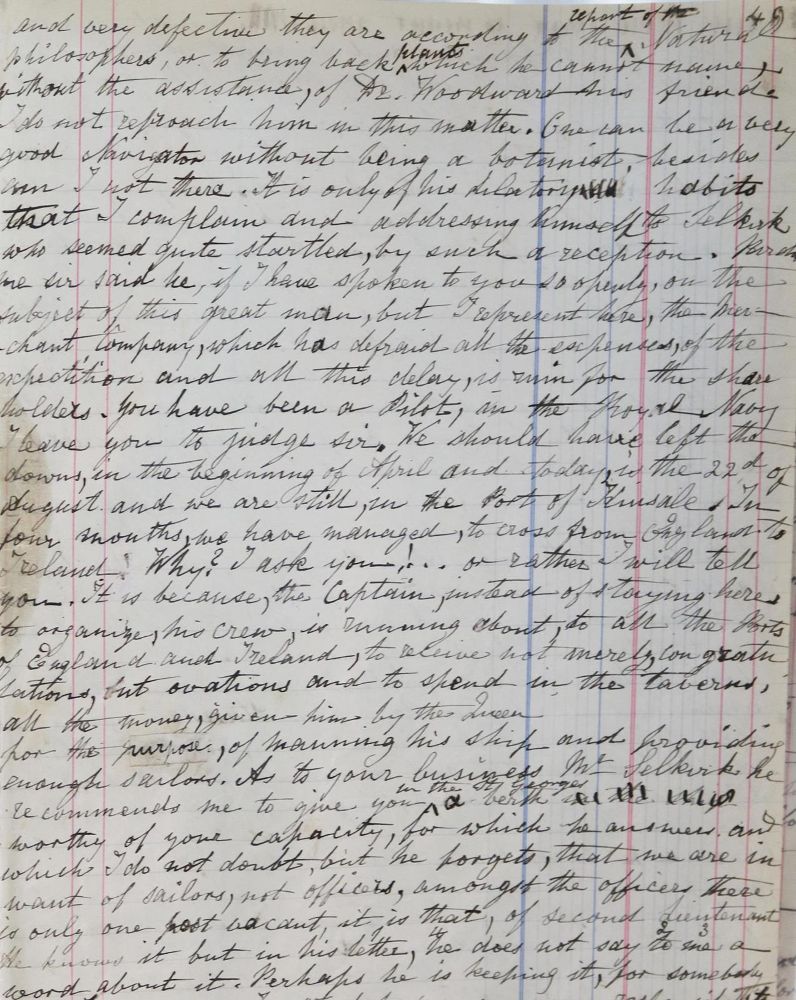 report of the 49
and very defective they are according to the Natural
philosophers, or to bring back plants which he cannot name,
without the assistance, of Dr. Woodward his friend.
I do not reproach him in this matter. One can be a very
good Navigator without being a botanist, besides
am I not there. It is only of his dilatory habits
that I complain and addressing himself to Selkirk
who seemed quite startled, by such a reception. Pardon
me sir said he, if I have spoken to you so openly, on the
subject of this great man, but I represent here, the Mer-
-chant Company, which has defraid all the expenses, of the
expedition and all this delay, is ruin for the share
holders. You have been a Pilot, in the Royal Navy
I leave you to judge sir. We should have left the
downs, in the beginning of April and today, is the 22d of
August and we are still, in the Port of Kinsale. In
four months, we have managed, to cross from England to
Ireland! Why? I ask you!... or rather I will tell
you. It is because, the Captain, instead of staying here,
to organize, his crew, is running about, to all the Ports
of England and Ireland, to receive not merely, congratu
lations, but ovations and to spend in the taverns,
all the money, given him by the Queen
for the purpose, of manning his ship and providing
enough sailors. As to your business Mr Selkirk he
recommends me to give you in the St George a berth
worthy of your capacity, for which he answers and
which I do not doubt, but he forgets, that we are in
want of sailors, not officers, amongst the officers there
is only one post vacant, it is that, of second Lieutenant
He knows it but in his letter, he does not say to me a
word about it. Perhaps he is keeping it, for somebody